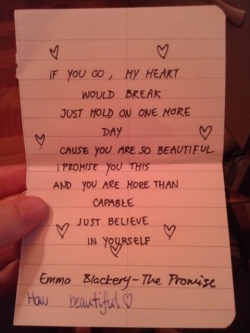 IF YOU GO, MY HEART
WOULD BREAK
JUST HOLD ON ONE MORE
DAY
CAUSE YOU ARE SO BEAUTIFUL
I PROMISE YOU THIS
AND YOU ARE MORE THAN
CAPABLE
JUST BELIEVE
IN YOURSELF
Emma Blackery - The Promise
How beautiful